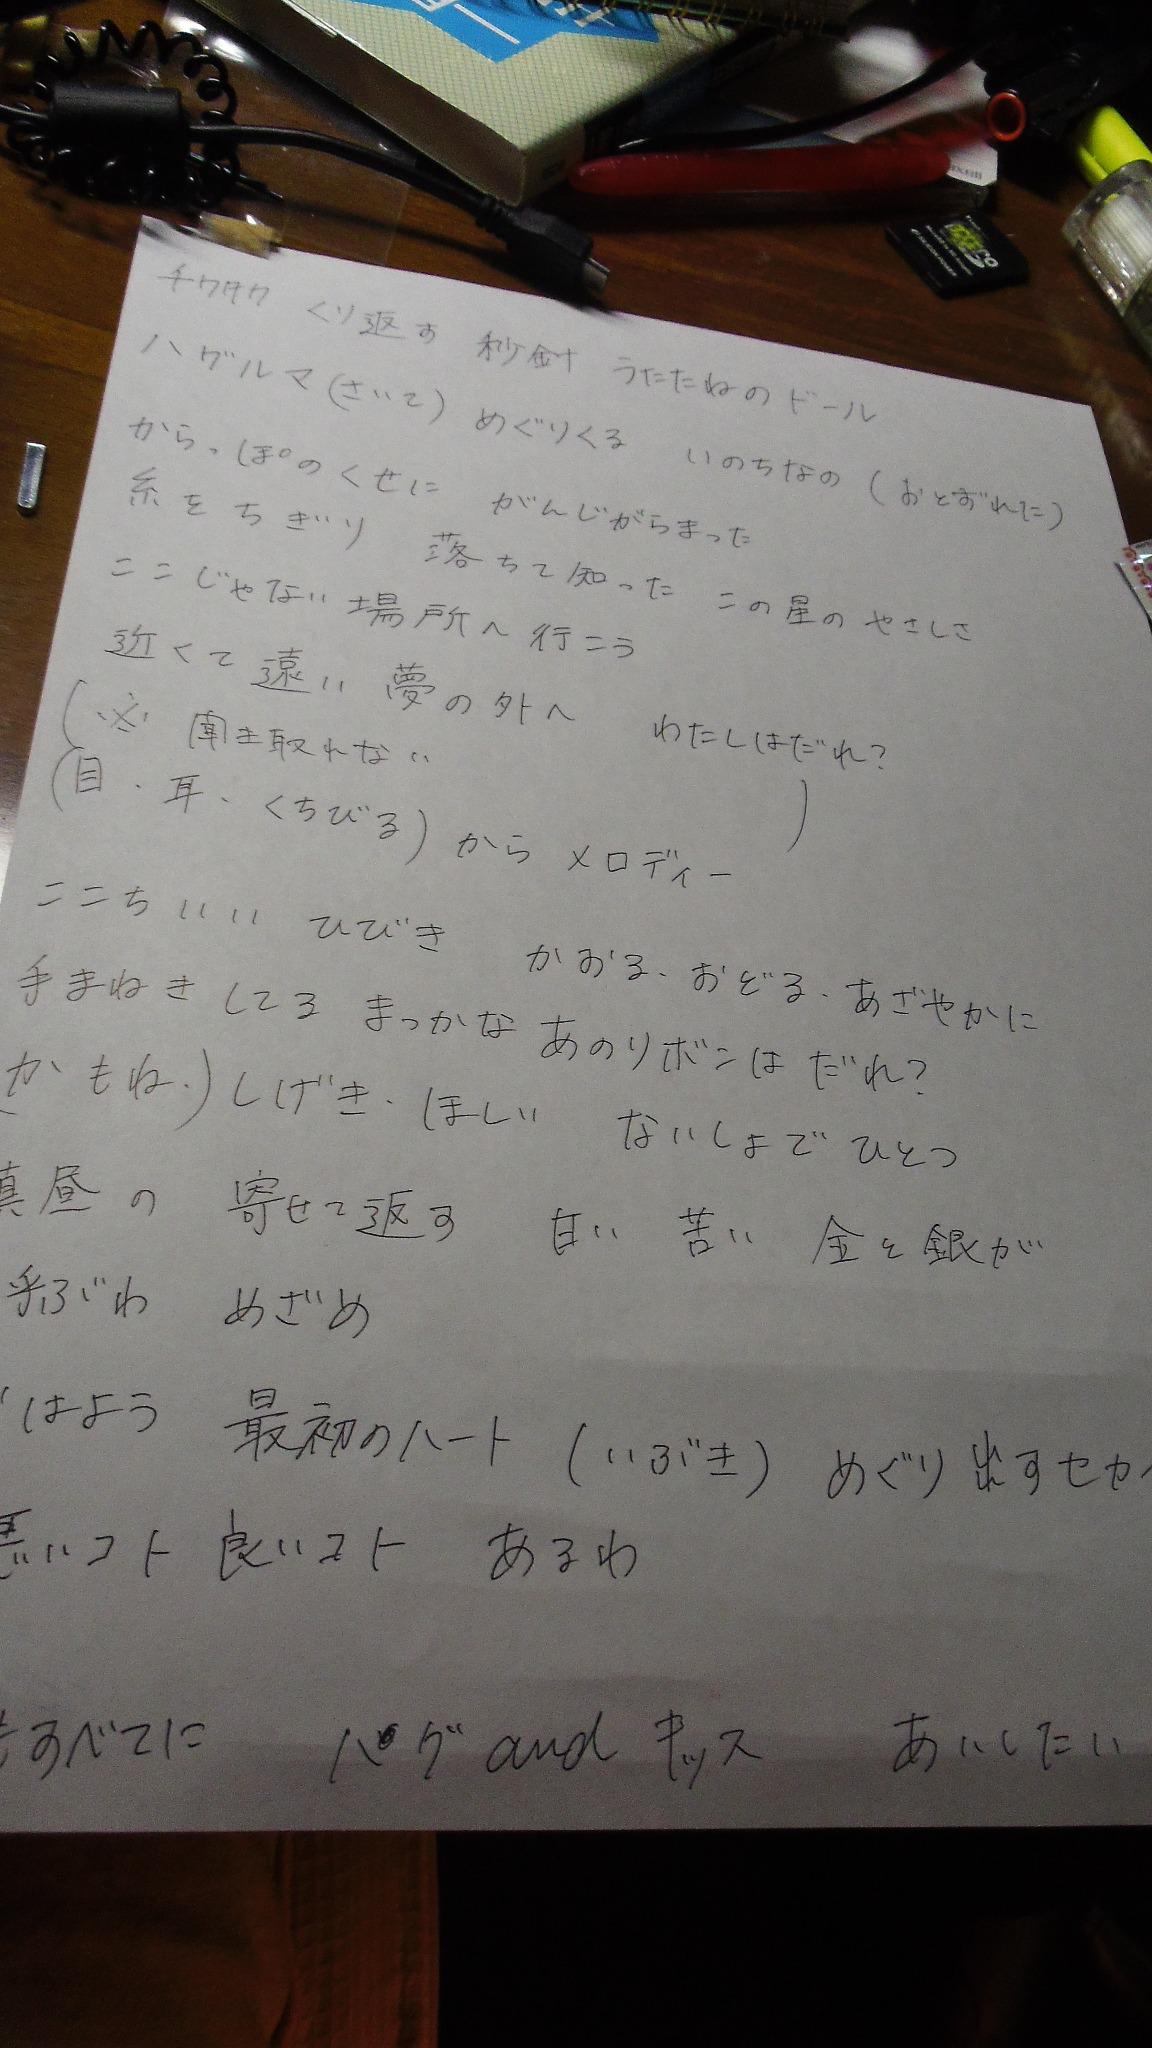 チクタク くり返す 秒針 うたたねのドール
ハグルマ(さいて) めぐりくる いのちなの (おとずれた)
からっぽのくせに がんじがらまった
糸をちぎり 落ちて知った この星のやさしさ
ここじゃない場所へ行こう
近くて遠い 夢の外へ わたしはだれ?
(※ 聞き取れない )
(目・耳・くちびる)から メロディー
ここちいい ひびき かおる・おどる・あざやかに
手まねきしてる まっかな あのリボンは だれ?
(かもね・)しげき・ほしい ないしょで ひとつ
真昼の 寄せて返す 甘い 苦い 金と銀が
呼ぶわ めざめ
はよう 最初のハート (いぶき) めぐり出すセカ
悪いコト 良いコト あるわ
すべてに ハグ and キッス あいしたい